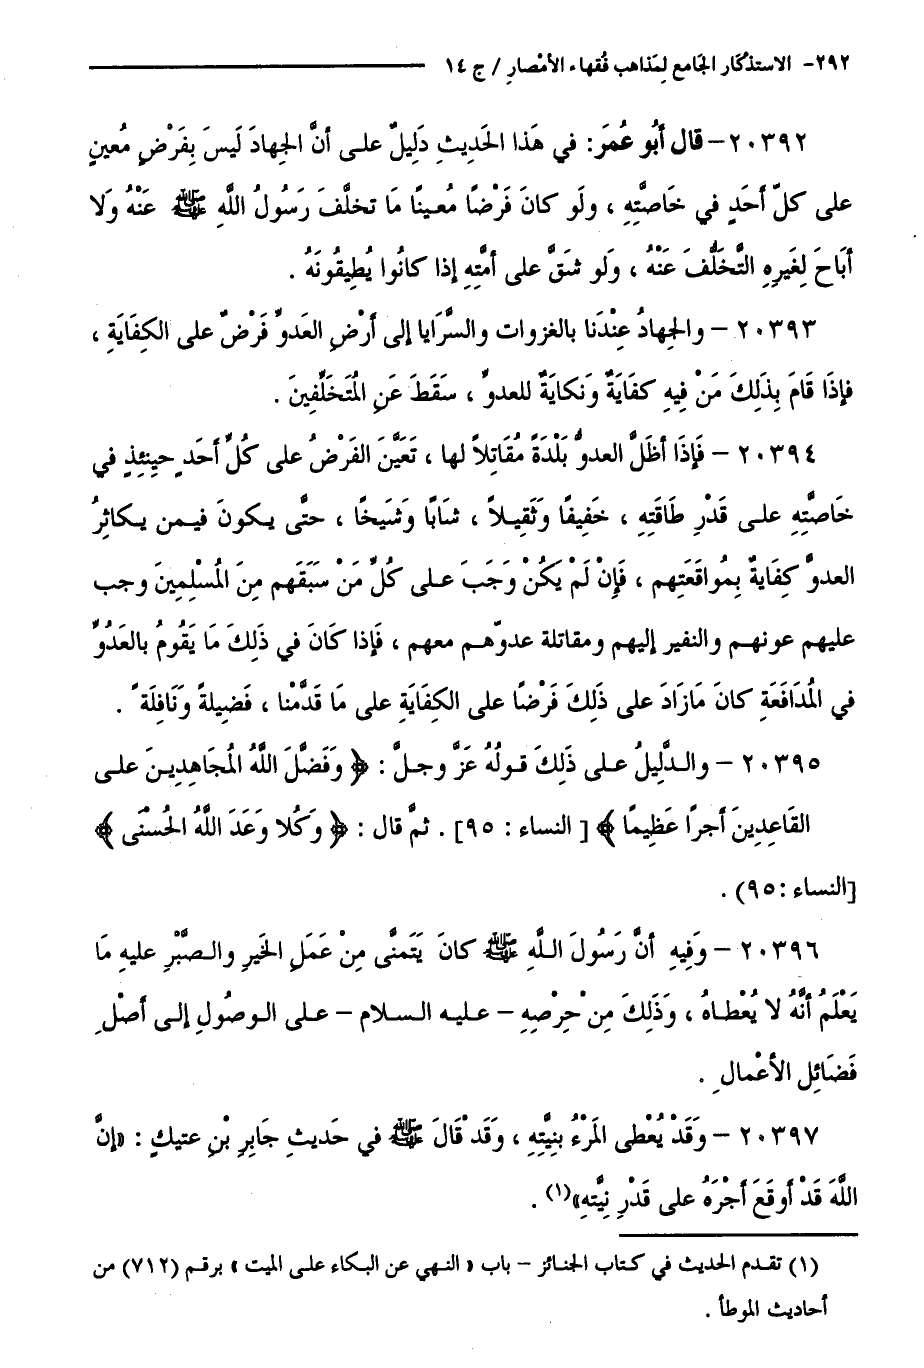 ٢٩٢- الاستذكار الجامع لمذاهب فقهاء الأمصار / ج ١٤
٢٠٣٩٢ – قال أَبُو عُمَرَ : في هَذا الحَديثِ دَلِيلٌ على أنَّ الجِهادَ لَيسَ بِفَرْضٍ مُعينٍ
على كلّ أحَدٍ في خَاصَّتِهِ ، ولَو كانَ فَرْضًا مُعينًا مَا تخلَّفَ رَسُولُ اللَّهِ ﷺ عَنْهُ وَلا
أبَاحَ لِغَيرِهِ التَّخَلُّفَ عَنْهُ ، وَلَو شقَّ على أمَّتِهِ إذا كانُوا يُطِيقُونَهُ .
٢٠٣٩٣ – والجِهادُ عِنْدَنا بالغزوات والسَّرَايا إلى أرْضِ العَدوِّ فَرْضٌ على الكِفَايَةِ ،
فإذَا قَامَ بِذَلِكَ مَنْ فِيهِ كفَايَةٌ وَنكايَةٌ للعدوِّ ، سَقَطَ عَنِ الْمُتَخَلِّفِينَ .
٢٠٣٩٤ – فَإذَا أظَلَّ العدوُّ بَلْدَةً مُقَاتِلاً لها ، تَعَيَّنَ الفَرْضُ على كُلِّ أحَدٍ حِينِئذٍ في
خَاصَّتِهِ على قَدْرِ طَاقَتِهِ ، خَفِيفًا وَثَقِيلاً ، شابًا وَشَيخًا ، حتَّى يكونَ فيمن يكاثِرُ
العدوَّ كفَايةٌ بِمُواقَعَتِهم ، فَإِنْ لَمْ يَكُنْ وَجَبَ على كُلِّ مَنْ سَبَقَهم مِنَ الْمُسْلِمِينَ وجب
عليهم عونهم والنفير إليهم ومقاتلة عدوّهم معهم ، فَإذا كَانَ في ذَلِكَ مَا يَقُومُ بالعَدُوِّ
في الْمُدَافَعَةِ كانَ مَازَادَ على ذَلِكَ فَرْضًا على الكِفَايَةِ على مَا قَدَّمْنا ، فَضِيلةً وَنَافِلَةً .
٢٠٣٩٥ – والدَّلِيلُ على ذَلِكَ قولُهُ عَزَّ وجلَّ : ﴿ وَفَضَّلَ اللَّهُ الْمُجَاهِدِينَ على
القَاعِدِينَ أجرًا عَظِيمًا ﴾ [ النساء : ٩٥] . ثمَّ قال : ﴿ وَكُلا وَعَدَ اللَّهُ الحُسْنَى ﴾
[النساء :٩٥) .
٢٠٣٩٦ – وَفِيهِ أنَّ رَسُولَ اللَّهِ ﷺ كانَ يَتَمنَّى مِنْ عَمَلِ الخَيرِ والصبَّرِ عليهِ مَا
يَعْلَمُ أنَّهُ لا يُعْطَاهُ ، وَذَلِكَ مِنْ حِرْصِهِ – عليه السلام – على الوصُولِ إلى أصْلِ
فَضَائِلِ الأعْمالِ .
٢٠٣٩٧ – وَقَدْ يُعْطى الْمَرْءُ بنِيَّتِهِ ، وَقَد قَالَ ﷺ في حَديثِ جَابِرِ بْنِ عتيكٍ : «إنَّ
اللَّهَ قَدْ أوقَعَ أجْرَهُ على قَدْرِ نِيَّتِهِ»(١) .
(١) تقدم الحديث في كتاب الجنائز – باب « النهي عن البكاء على الميت » برقم (٧١٢) من
أحاديث الموطأ .